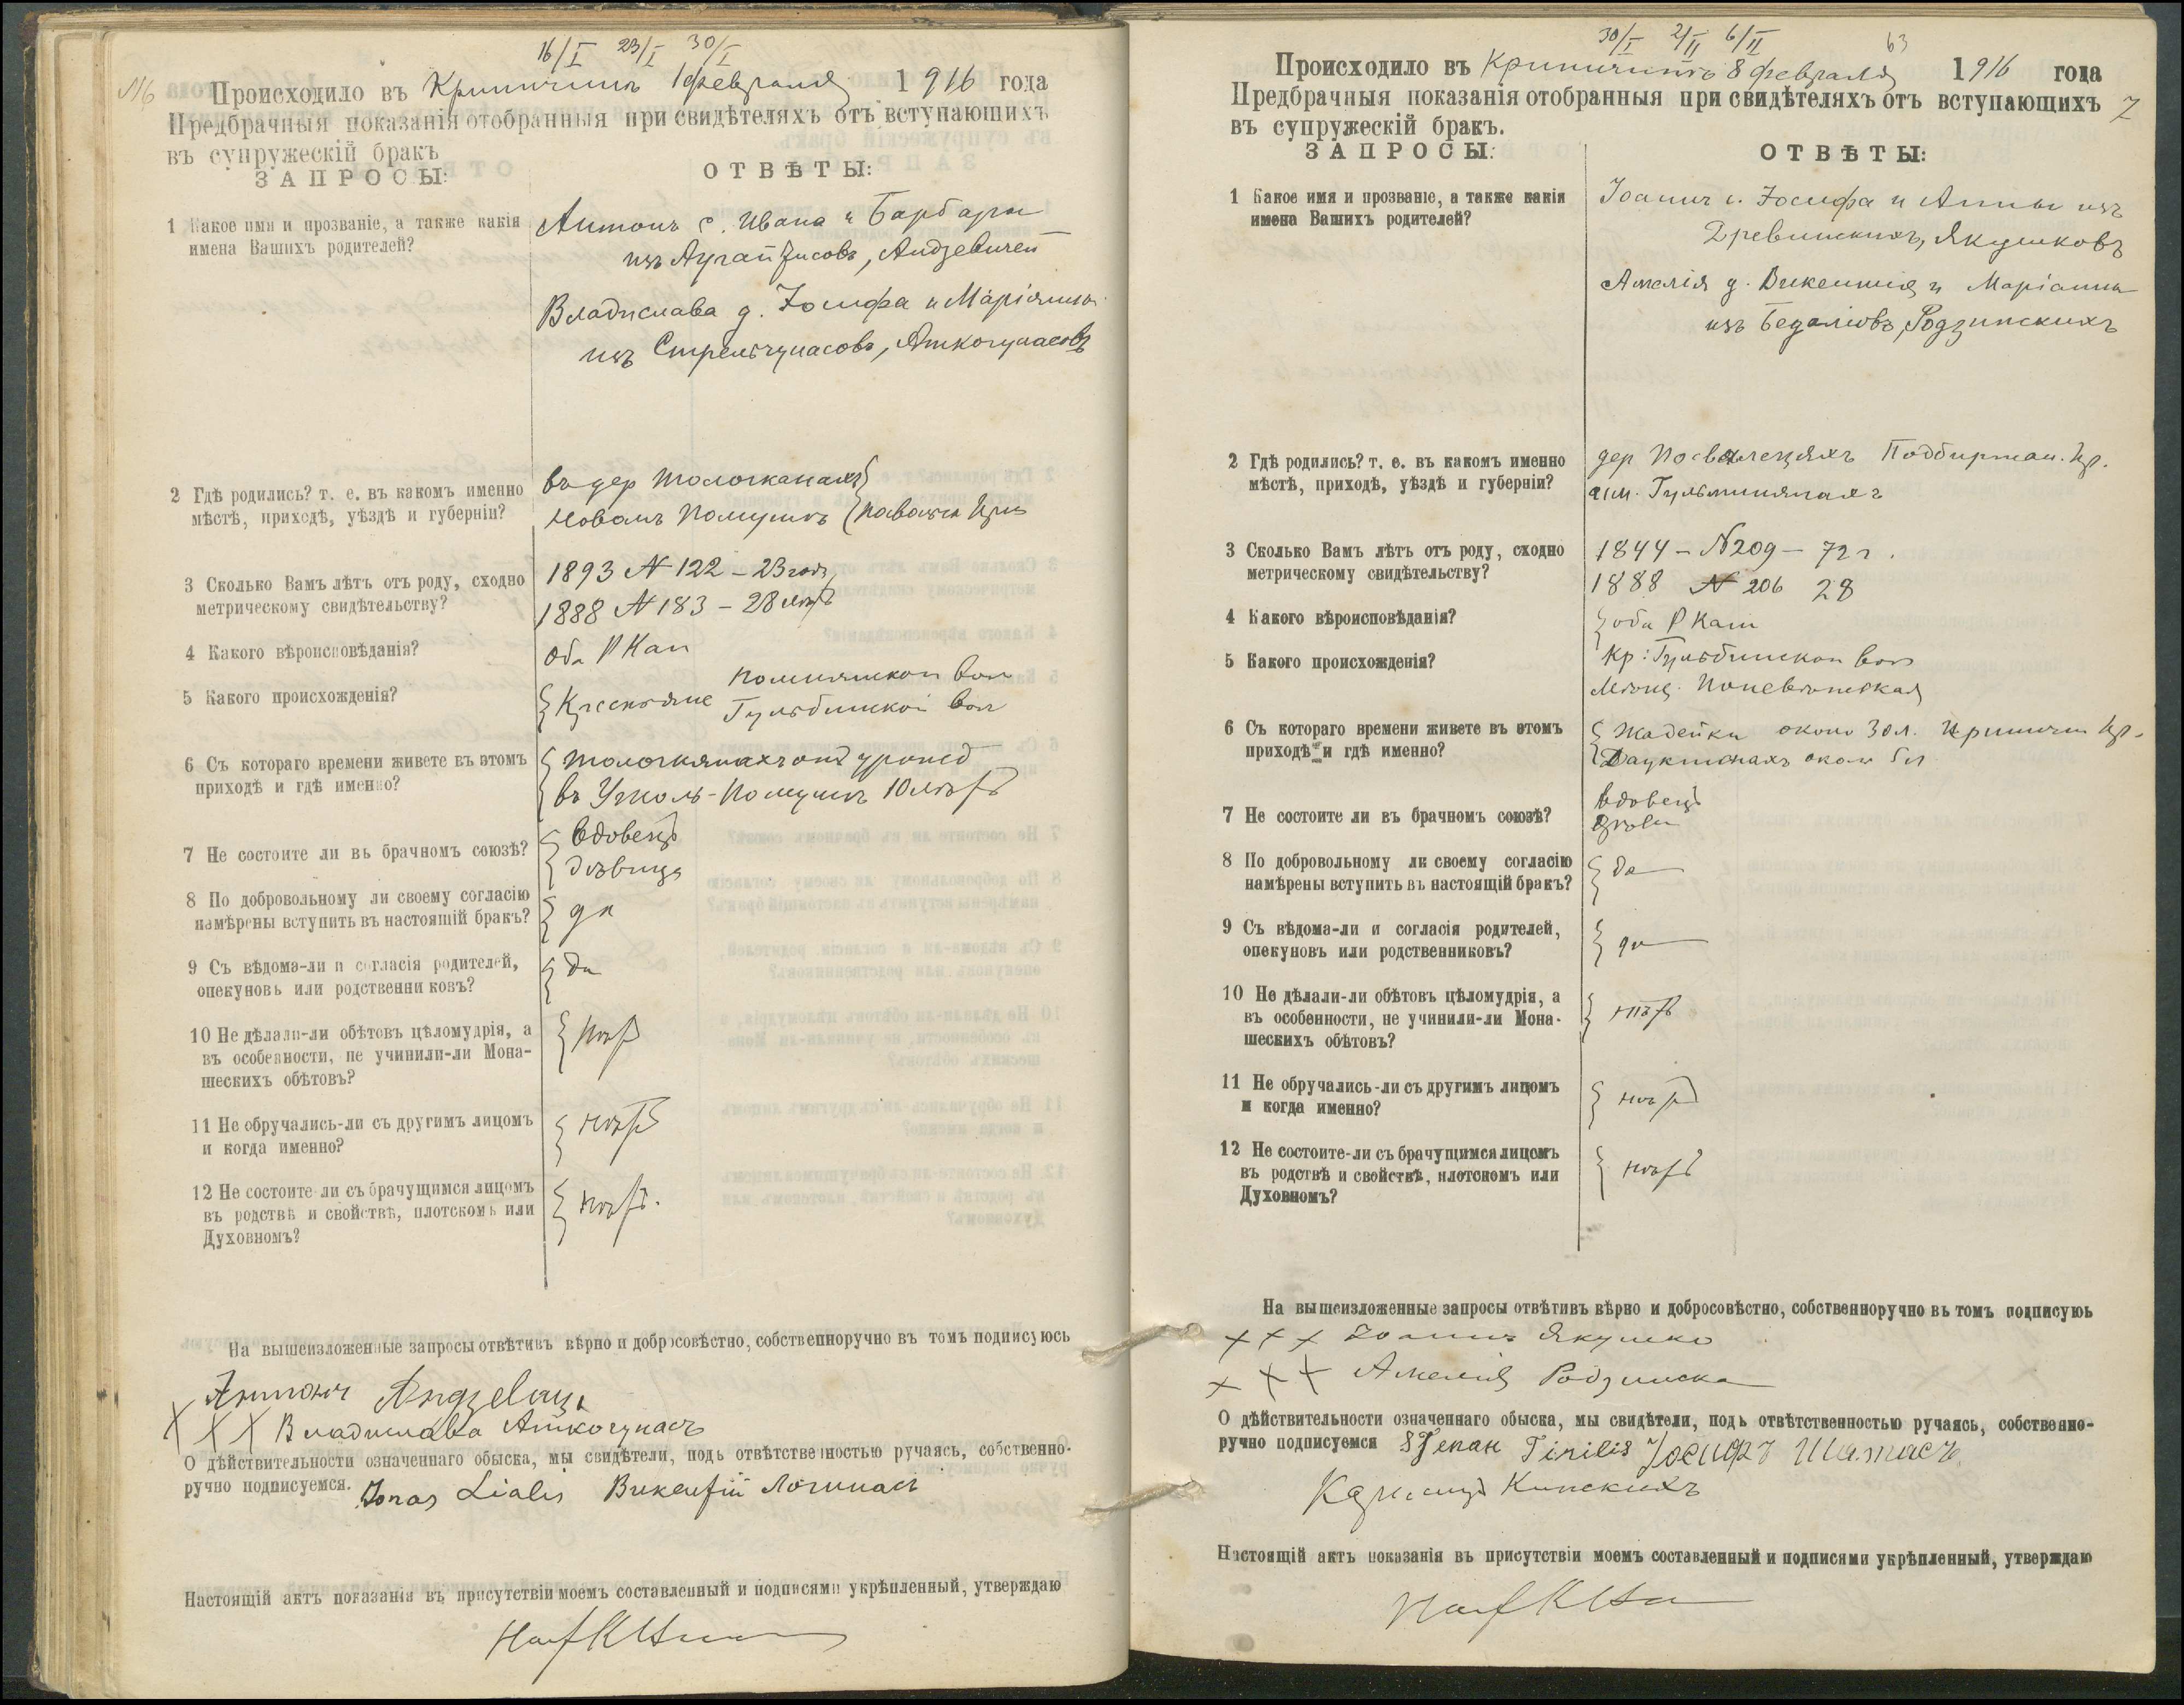 16/I 23/I 30/I
№6 Происходило въ Криничинѣ 1 февраля 1916 года
Предбрачныя показанія отобранныя при свидѣтеляхъ отъ вступающихъ
въ супружескій бракъ
ЗАПРОСЫ:
ОТВѢТЫ:
1 Какое имя и прозваніе, а также какія
имена Вашихъ родителей?
Антонъ с. Ивана и Барбары
изъ Андзевичей
Владислава д. Іосифа и Маріянны
изъ Стрельчунасовъ, Аткочунасовъ
2 Гдѣ родились? т. е. въ какомъ именно
мѣстѣ, приходѣ, уѣздѣ и губерніи?
въ дер
Новомъ Помушѣ
3 Сколько Вамъ лѣтъ отъ роду, сходно
метрическому свидѣтельству?
1893 № 122 – 23 года
1888 № 183 – 28 лѣтъ
4 Какого вѣроисповѣданія?
оба Р Кат
5 Какого происхожденія?
Крестьяне
Гульбинской вол
6 Съ котораго времени живете въ этомъ
приходѣ и гдѣ именно?
10 лѣтъ
7 Не состоите ли въ брачномъ союзѣ?
вдовецъ
дѣвица
8 По добровольному ли своему согласію
намѣрены вступить въ настоящій бракъ?
да
9 Съ вѣдома-ли и согласія родителей,
опекуновъ или родственниковъ?
да
10 Не дѣлали-ли обѣтовъ цѣломудрія, а
въ особенности, не учинили-ли Мона-
шескихъ обѣтовъ?
нѣтъ
11 Не обручались-ли съ другимъ лицомъ
и когда именно?
нѣтъ
12 Не состоите ли съ брачущимся лицомъ
въ родствѣ и свойствѣ, плотскомъ или
Духовномъ?
нѣтъ.
На вышеизложенные запросы отвѣтивъ вѣрно и добросовѣстно, собственноручно въ томъ подписуюсь
Антонъ
X X X Владислава Аткочунасъ
О дѣйствительности означеннаго обыска, мы свидѣтели, подъ отвѣтственностью ручаясь, собственно-
ручно подписуемся. Jonas Lialis Викентій
Настоящій актъ показанія въ присутствіи моемъ составленный и подписями укрѣпленный, утверждаю
30/I 2/II 6/II
63
Происходило въ Криничинѣ 8 февраля 1916 года
Предбрачныя показанія отобранныя при свидѣтеляхъ отъ вступающихъ 7
въ супружескій бракъ.
ЗАПРОСЫ:
ОТВѢТЫ:
1 Какое имя и прозваніе, а также какія
имена Вашихъ родителей?
Іоаннъ с. Іосифа и Анны изъ
Древинскихъ, Якушковъ
Амелія д. Викентія и Маріанны
изъ Родзинскихъ
2 Гдѣ родились? т. е. въ какомъ именно
мѣстѣ, приходѣ, уѣздѣ и губерніи?
дер
им.
3 Сколько Вамъ лѣтъ отъ роду, сходно
метрическому свидѣтельству?
1844 – №209 – 72 г.
1888 № 206 28
4 Какого вѣроисповѣданія?
оба Р Кат
5 Какого происхожденія?
Кр: Гульбинской вол
6 Съ котораго времени живете въ этомъ
приходѣ и гдѣ именно?
Жадейки около 30 л. Кринич. пр.
7 Не состоите ли въ брачномъ союзѣ?
вдовецъ
8 По добровольному ли своему согласію
намѣрены вступить въ настоящій бракъ?
да
9 Съ вѣдома-ли и согласія родителей,
опекуновъ или родственниковъ?
да
10 Не дѣлали-ли обѣтовъ цѣломудрія, а
въ особенности, не учинили-ли Мона-
шескихъ обѣтовъ?
нѣтъ
11 Не обручались-ли съ другимъ лицомъ
и когда именно?
нѣтъ
12 Не состоите-ли съ брачущимся лицомъ
въ родствѣ и свойствѣ, плотскомъ или
Духовномъ?
нѣтъ
На вышеизложенные запросы отвѣтивъ вѣрно и добросовѣстно, собственноручно въ томъ подписуюь
X X X Іоаннъ Якушко
X X X Амелія Родзинска
О дѣйствительности означеннаго обыска, мы свидѣтели, подъ отвѣтственностью ручаясь, собственно-
ручно подписуемся Іосифъ Шатасъ
Настоящій актъ показанія въ присутствіи моемъ составленный и подписями укрѣпленный, утверждаю